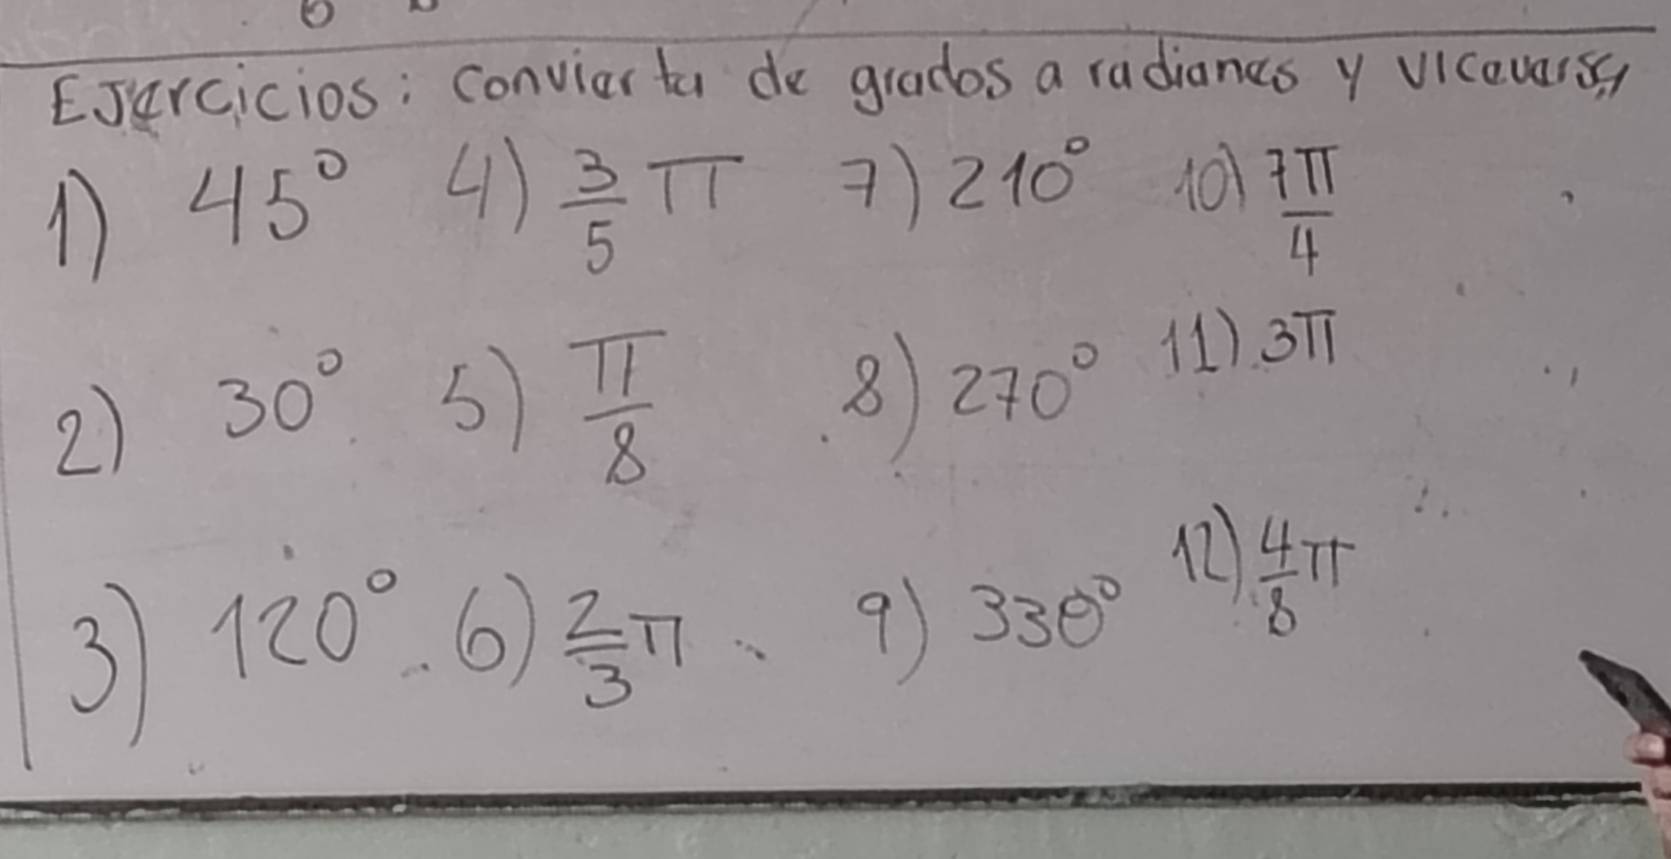 Ejercicios: convierta de grados a radianes y viceversa
1) 45° 4) 3/5 π 7) 210° 10) 7π/4
2) 30° 5) π/8 8) 270° 11) 3π
3) 120° 6) 2/3 π 9) 330° 12) 4/8 π